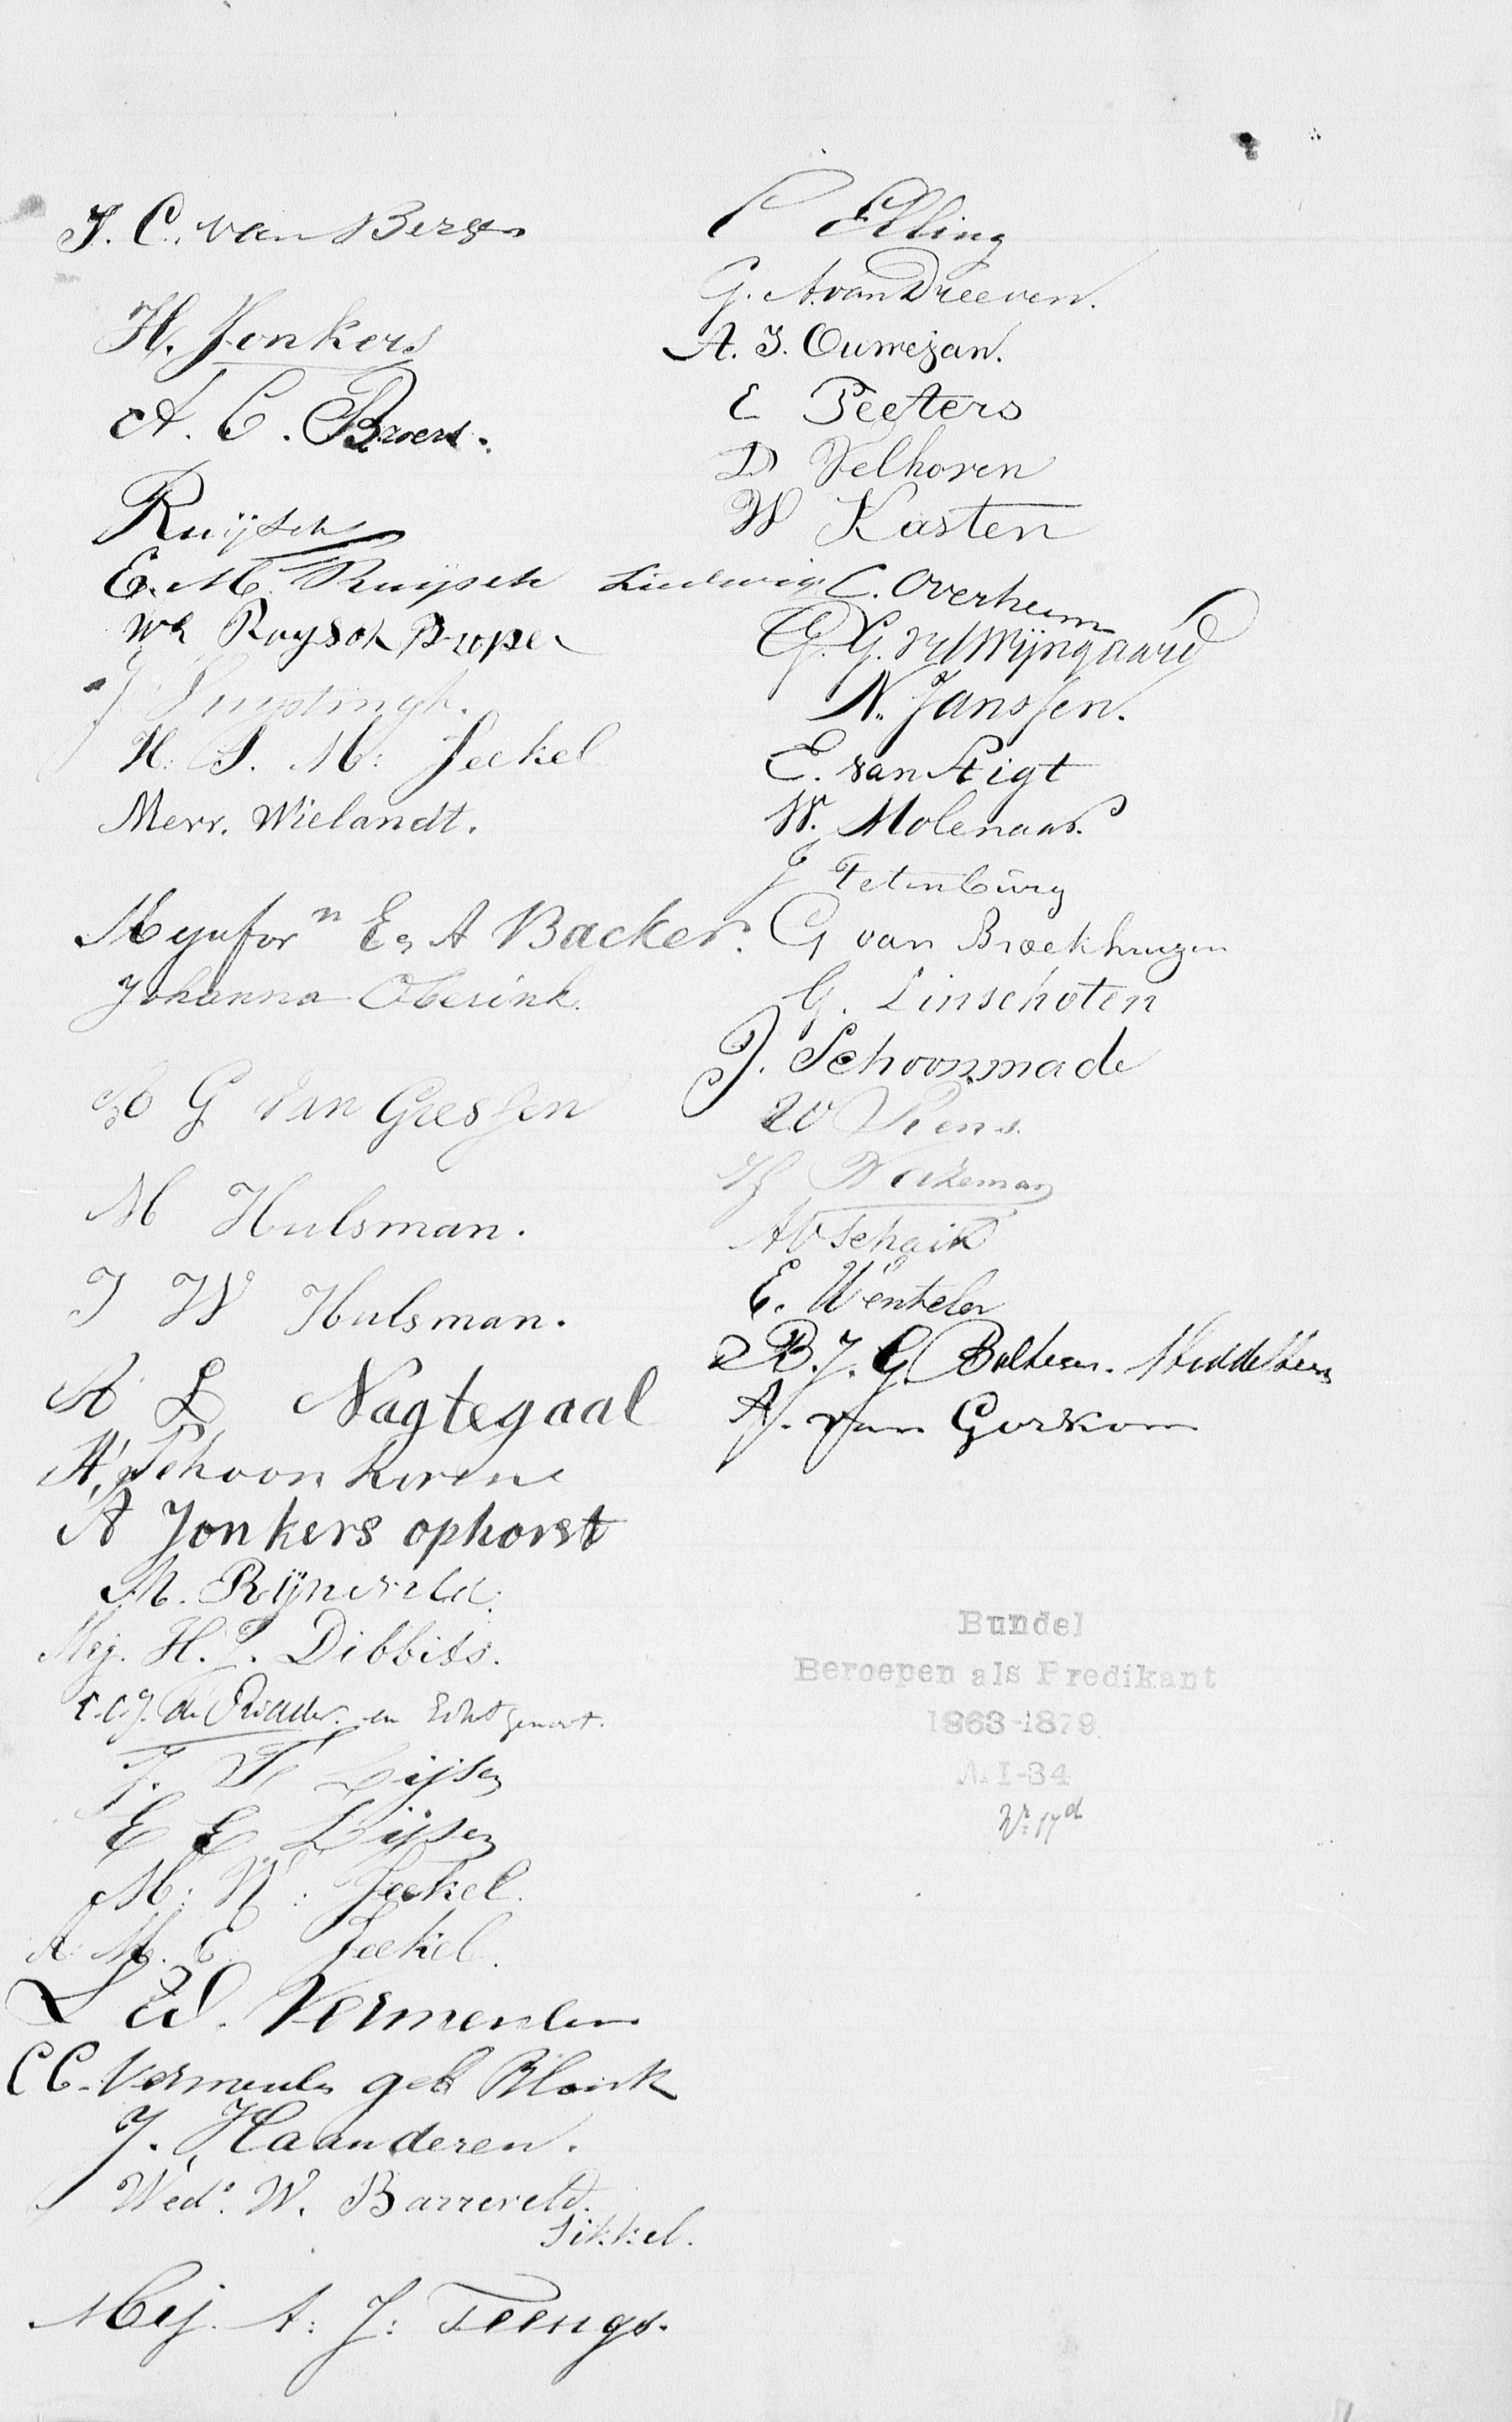 J. C. van Bergen
H. Jonkers
A. C. Broers.
Ruijsch
E. M. Ruijsch Ludwig
We Ruysch Broper
J
H: S. M: Jeekel
Mevr. Wielandt.
E, A Backer.
Johanna Oberink.
G van Giessen
M Hulsman.
J W Hulsman.
A L Nagtegaal
A, Schoonhoven
A Jonkers ophorst
M. Rijneveld.
Mej. H. J. Dibbits.
C.C.J. de Ridder en Echtgenoot.
J. F Lijsen
E E Lijsen
M: W: Jeekel.
A. M. C. Jeekel.
L W. Vermeulen
C C. Vermeulen geb Blonk
J. Haanderen.
Wed. W. Barreveld.
Sikkel.
Mej. A: J: Teengs.
C Elling
G. A. van Dreeven.
A. J. Ouwejan.
E Peeters
D Velhoven
W Kasten
C. Overheim
G. G. vd Wijngaard
N. Janssen.
E. van Stigt
W. Molenaar.
J Petenburg
G van Broekhuyzen
G. Linschoten
J. Schoonmade
Piens.
H
A v Schaik
E. Wenteler
B. J. G. Middelbeers
A. van Gorkom
Bundel
Beroepen als Predikant
1863-1879
A. I-34
Nr. 17d